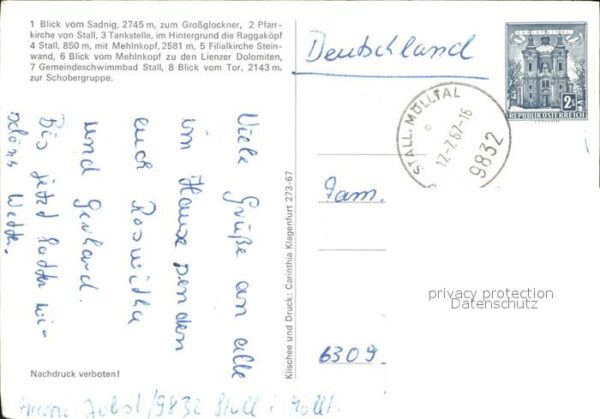 1 Blick vom Sadnig, 2745 m, zum Großglockner, 2 Pfarr-
kirche von Stall, 3 Tankstelle, im Hintergrund die Raggaköpf
4 Stall, 850 m, mit Mehlnkopf, 2581 m, 5 Filialkirche Stein-
wand, 6 Blick vom Mehlnkopf zu den Lienzer Dolomiten,
7 Gemeindeschwimmbad Stall, 8 Blick vom Tor, 2143 m.
zur Schobergruppe.
Viele Grüße an alle
im Hause senden
euch Roswitha
und Gerhard.
Bis jetzt hatten wir
schönes Wetter.
Nachdruck verboten!
Klischee und Druck: Carinthia Klagenfurt 273-67
Deutschland
REPUBLIK ÖSTERREICH
STALL, MÖLLTAL
12-7.67-16
9832
Fam.
privacy protection
Datenschutz
6309
/9832 Stall i. Möllt.